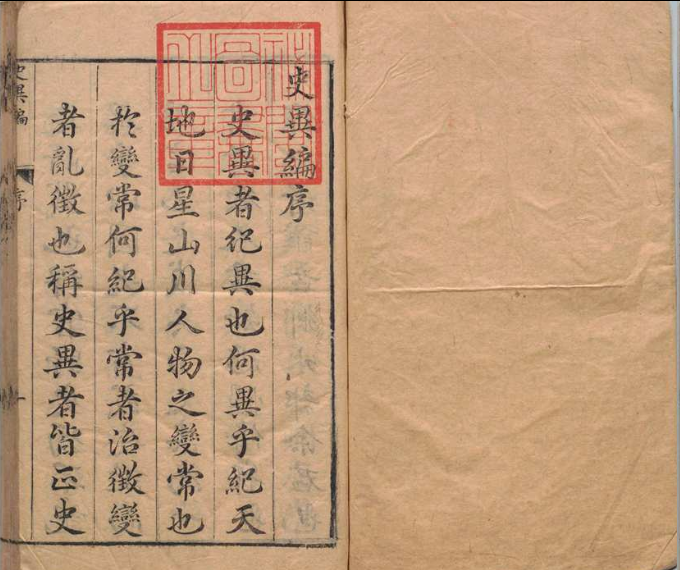 史異編序
史異者紀異也何異乎紀天
地日星山川人物之變常也
於變常何紀乎常者治徵變
者亂徵也稱史異者皆正史
史異編
序